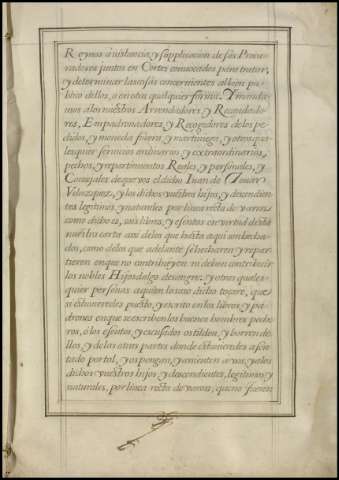 Reynos a instancia, y supplicacion de sus Procu-
radores juntos en Cortes convocados para tratar,
y determinar las cosas concernientes al bien pu-
blico dellos, o en otra qualquier forma. Y manda-
mos a los nuestros Arrendadores y Recaudado-
res, Empadronadores y Recogedores de los pe-
didos, y moneda forera, y martiniega, y otros qua-
lesquier servicios ordinarios y extraordinarios,
pechos, y repartimientos Reales, y personales, y
Concejales, de que vos el dicho Iuan de
Velazquez, y los dichos vuestros hijos, y descendien-
tes legitimos, y naturales por linea recta de varon,
como dicho es, sois libres, y esentos en virtud desta
nuestra carta assi delos que hasta aqui son hecha-
dos, como delos que adelante se hecharen y repar-
tieren en que no contribuyen, ni deben contribuir
los nobles Hijosdalgo de sangre, y otras quales-
quier personas a quien lo suso dicho tocare, que
si estuvieredes puesto, y escrito en los libros, y pa-
drones en que se escriben los buenos hombres peche-
ros, o los esentos, y escusados os tilden, y borren de-
llos, y de las otras partes donde estuvieredes asen-
tado por tal, y os pongan, y asienten a vos, y a los
dichos vuestros hijos, y descendientes, legitimos, y
naturales, por linea recta de varon, que no fueren